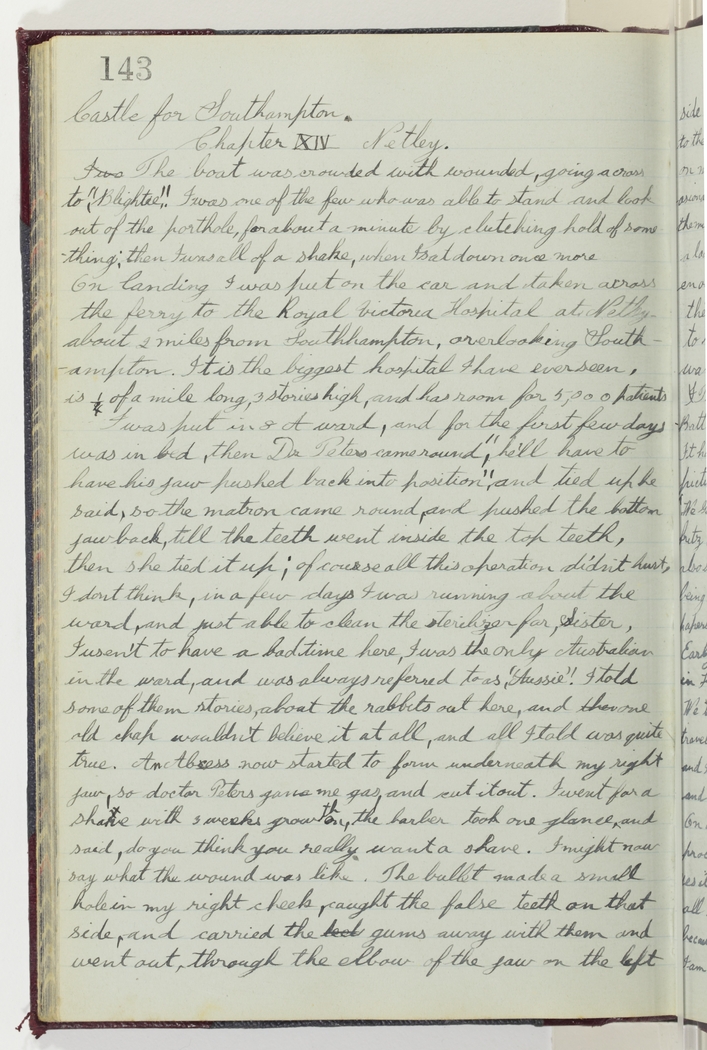 143
Castle for Southampton.
Chapter XIV Netley.
I was The boat was crowded with wounded, going across
to "Blightee"!! I was one of the few who was able to stand and look
out of the porthole, for about a minute by clutching hold of some-
-thing; then I was all of a shake, when I sat down once more
On landing I was put on the car and taken across
the ferry to the Royal Victoria Hospital at Netly
about 2 miles from Southhampton, overlooking South-
-ampton. It is the biggest hospital I have ever seen,
is ¼ of a mile long, 3 stories high, and has room for 5,000 patients
I was put in & A ward, and for the first few days
was in bed, then Dr Peters came round", he'll have to
have his jaw pushed back into position", and tied up he
said, so the matron came round, and pushed the bottom
jaw back, till the teeth went inside the top teeth,
then she tied it up; of course all this operation didn't hurt,
I dont think, in a few days I was running about the
ward, and just able to clean the sterilizer for, Sister,
I wasn't to have a bad time here, I was the only Australian
in the ward, and was always referred to as, "Aussie"! I told
some of them stories, about the rabbits out here, and then one
old chap wouldn't believe it at all, and all I told was quite
true. An Abcess now started to form underneath my right
jaw, so doctor Peters gave me gas, and cut it out. I went for a
shave with 3 weeks growth on, the barber took one glance, and
said, do you think you really want a shave. I might now
say what the wound was like. The bullet made a small
hole in my right cheek, caught the false teeth on that
side, and carried the gums away with them and
went out, through the elbow of the jaw on the left